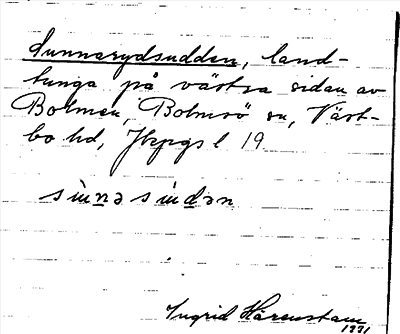 Sunnarydsudden, land-
tunga på västra sidan av
Bolmen, Bolmsö sn, Väst-
bo hd, Jkpgs l 19
sinəsindən
Ingrid Härenstam
1931